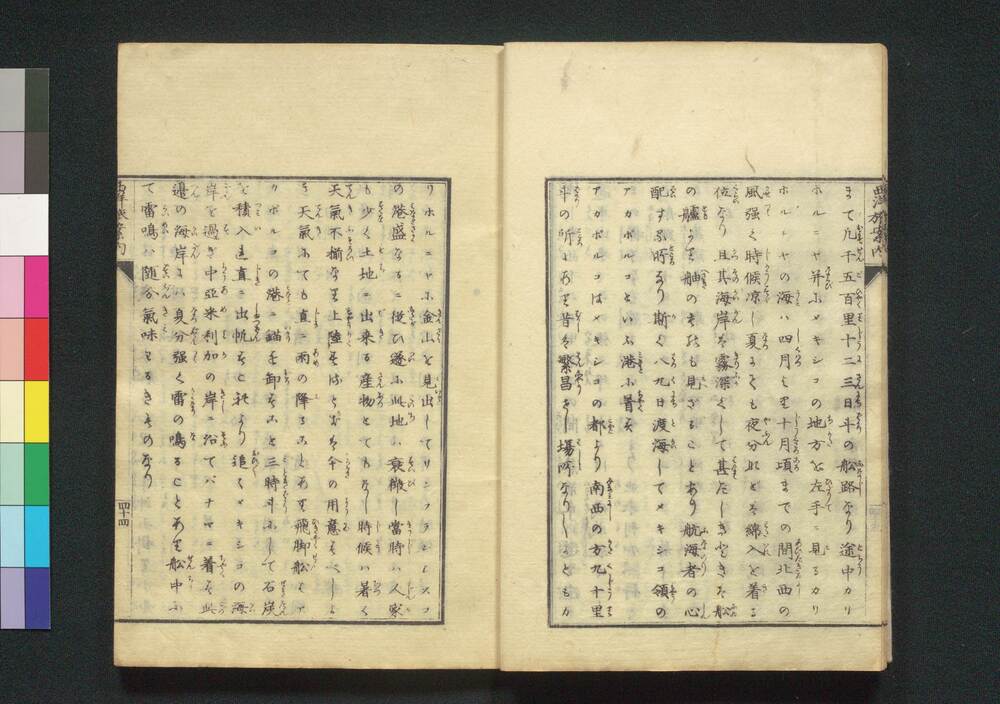 まて凡千五百里十二三日斗の船路なり途中カリ
ホルニヤ并ふメキシコの地方を左手ニ見るカリ
ホルニヤの海ハ四月より十月頃までの間北西の
風強く時候凉し夏にても夜分ハ綿入を着る
位なり且其海岸ハ霧深くして甚だしきときハ船
の艫より舳のそれも見ざることあり航海者の心
配する所なり斯く八九日渡海してメキシコ領の
アカポルコといふ港ふ着す
アカポルコはメキシコの都より南西の方九十里
斗の所にあり昔ハ繁昌なりし場所なりしともカ
西洋旅案内
リホルニヤふ金山を見出してサンフランシスコ
の港盛なるニ從ひ遂ふ此地ハ衰微し當時ハ人家
も少く土地ニ出来る産物とてもなし時候ハ暑く
天氣不揃なり上陸するともかさの用意すべしよ
き天氣にても直ニ雨の降ることあり飛脚船ハア
カポルコの港ニ錨を卸すこと三時斗ふして石炭
を積入れ直ニ出帆す夫より追々メキシコの海
岸を過ぎ中亞米利加の岸ニ沿てパナマニ着す此
邊の海岸にハ身分強く雷の鳴ることあり船中ふ
て雷鳴ハ随分氣味わるきものなり
四十四